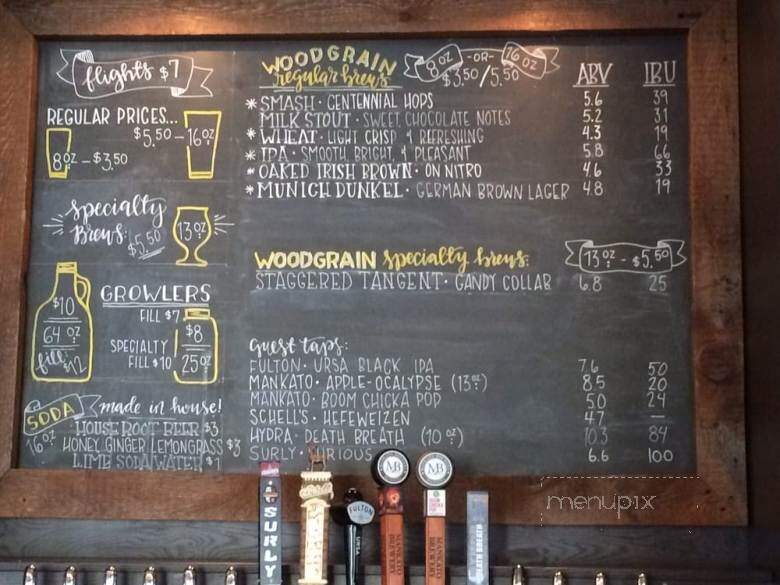 flights $7
REGULAR PRICES...
$5.50 - 16oz
8oz - $3.50
Specialty
Brews:
$5.50
13oz
GROWLERS
FILL $7
$10
64 oz
fill: $12
$8
25oz
SPECIALTY
FILL $10
SODA
made in house!
16oz
HOUSE ROOT BEER $3
HONEY GINGER LEMONGRASS $3
LIME SODA WATER $1
WOODGRAIN
regular brews
8oz -OR- 16oz
$3.50/5.50
ABV IBU
* SMASH · CENTENNIAL HOPS 5.6 39
MILK STOUT · SWEET, CHOCOLATE NOTES 5.2 31
* WHEAT · LIGHT CRISP & REFRESHING 4.3 19
* IPA · SMOOTH, BRIGHT, & PLEASANT 5.8 66
* OAKED IRISH BROWN · ON NITRO 4.6 33
* MUNICH DUNKEL · GERMAN BROWN LAGER 4.8 19
WOODGRAIN specialty brews: 13oz - $5.50
STAGGERED TANGENT · GANDY COLLAB 6.8 25
guest taps:
FULTON · URSA BLACK IPA 7.6 50
MANKATO · APPLE-OCALYPSE (13oz) 8.5 20
MANKATO · BOOM CHICKA POP 5.0 24
SCHELL'S · HEFEWEIZEN 4.7 —
HYDRA · DEATH BREATH (10 oz) 10.3 84
SURLY · FURIOUS 6.6 100
menupix
MB
MB
SURLY
FULTON
URSA
MANKATO BREWERY
MANKATO BREWERY
DEATH BREATH